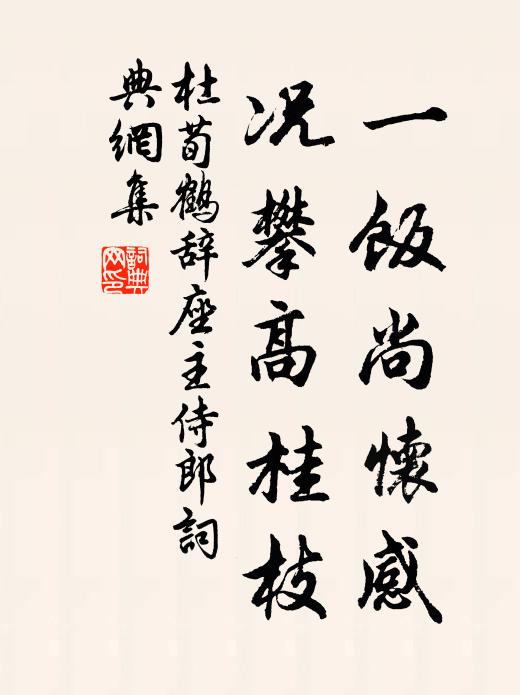 一飯尚懷感
況攀高桂枝
杜荀鶴辞座主侍郎詞
典網集
詞典
网印